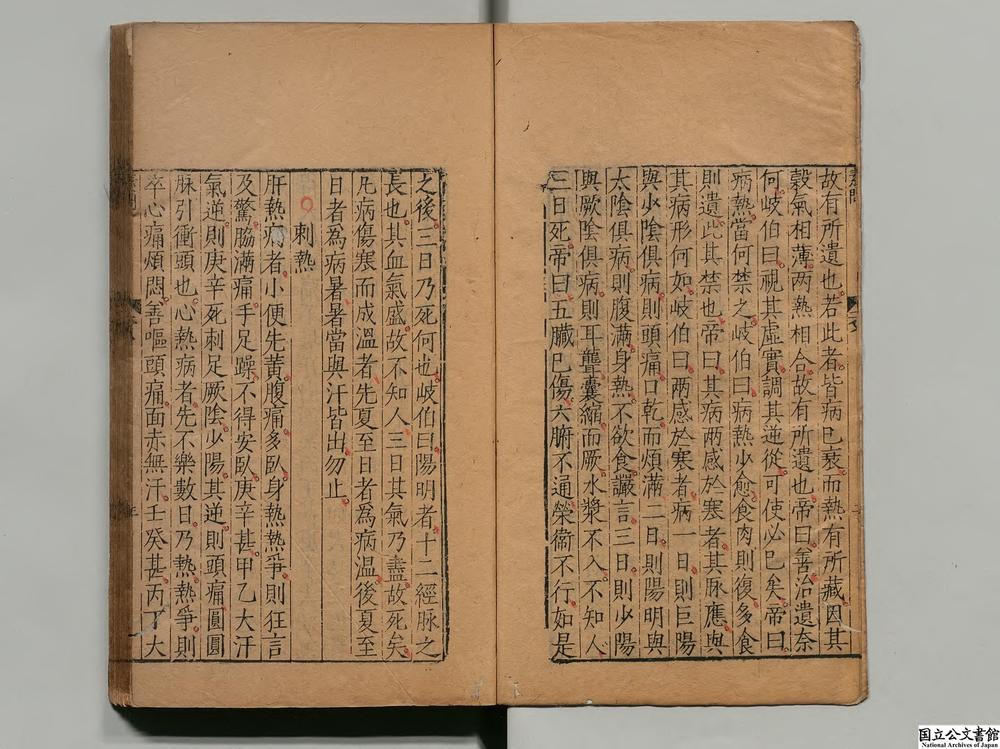 故有所遺也若此者皆病已衰而熱有所藏因其
穀氣相薄兩熱相合故有所遺也帝曰善治遺奈
何岐伯曰視其虛實調其逆從可使必已矣帝曰
病熱當何禁之岐伯曰病熱少愈食肉則復多食
則遺此其禁也帝曰其病兩感於寒者其脉應與
其病形何如岐伯曰兩感於寒者病一日則巨陽
與少陰俱病則頭痛口乾而煩滿二日則陽明與
太陰俱病則腹滿身熱不欲食讝言三日則少陽
與厥陰俱病則耳聾囊縮而厥水漿不入不知人
三日死帝曰五臟已傷六腑不通榮衞不行如是
之後三日乃死何也岐伯曰陽明者十二經脉之
長也其血氣盛故不知人三日其氣乃盡故死矣
凡病傷寒而成溫者先夏至日者為病溫後夏至
日者為病暑暑當與汗皆出勿止
刺熱
肝熱病者小便先黃腹痛多臥身熱熱爭則狂言
及驚脇滿痛手足躁不得安臥庚辛甚甲乙大汗
氣逆則庚辛死刺足厥陰少陽其逆則頭痛圓圓
脉引衝頭也心熱病者先不樂數日乃熱熱爭則
卒心痛煩悶善嘔頭痛面赤無汗壬癸甚丙丁大
国立公文書館
National Archives of Japan